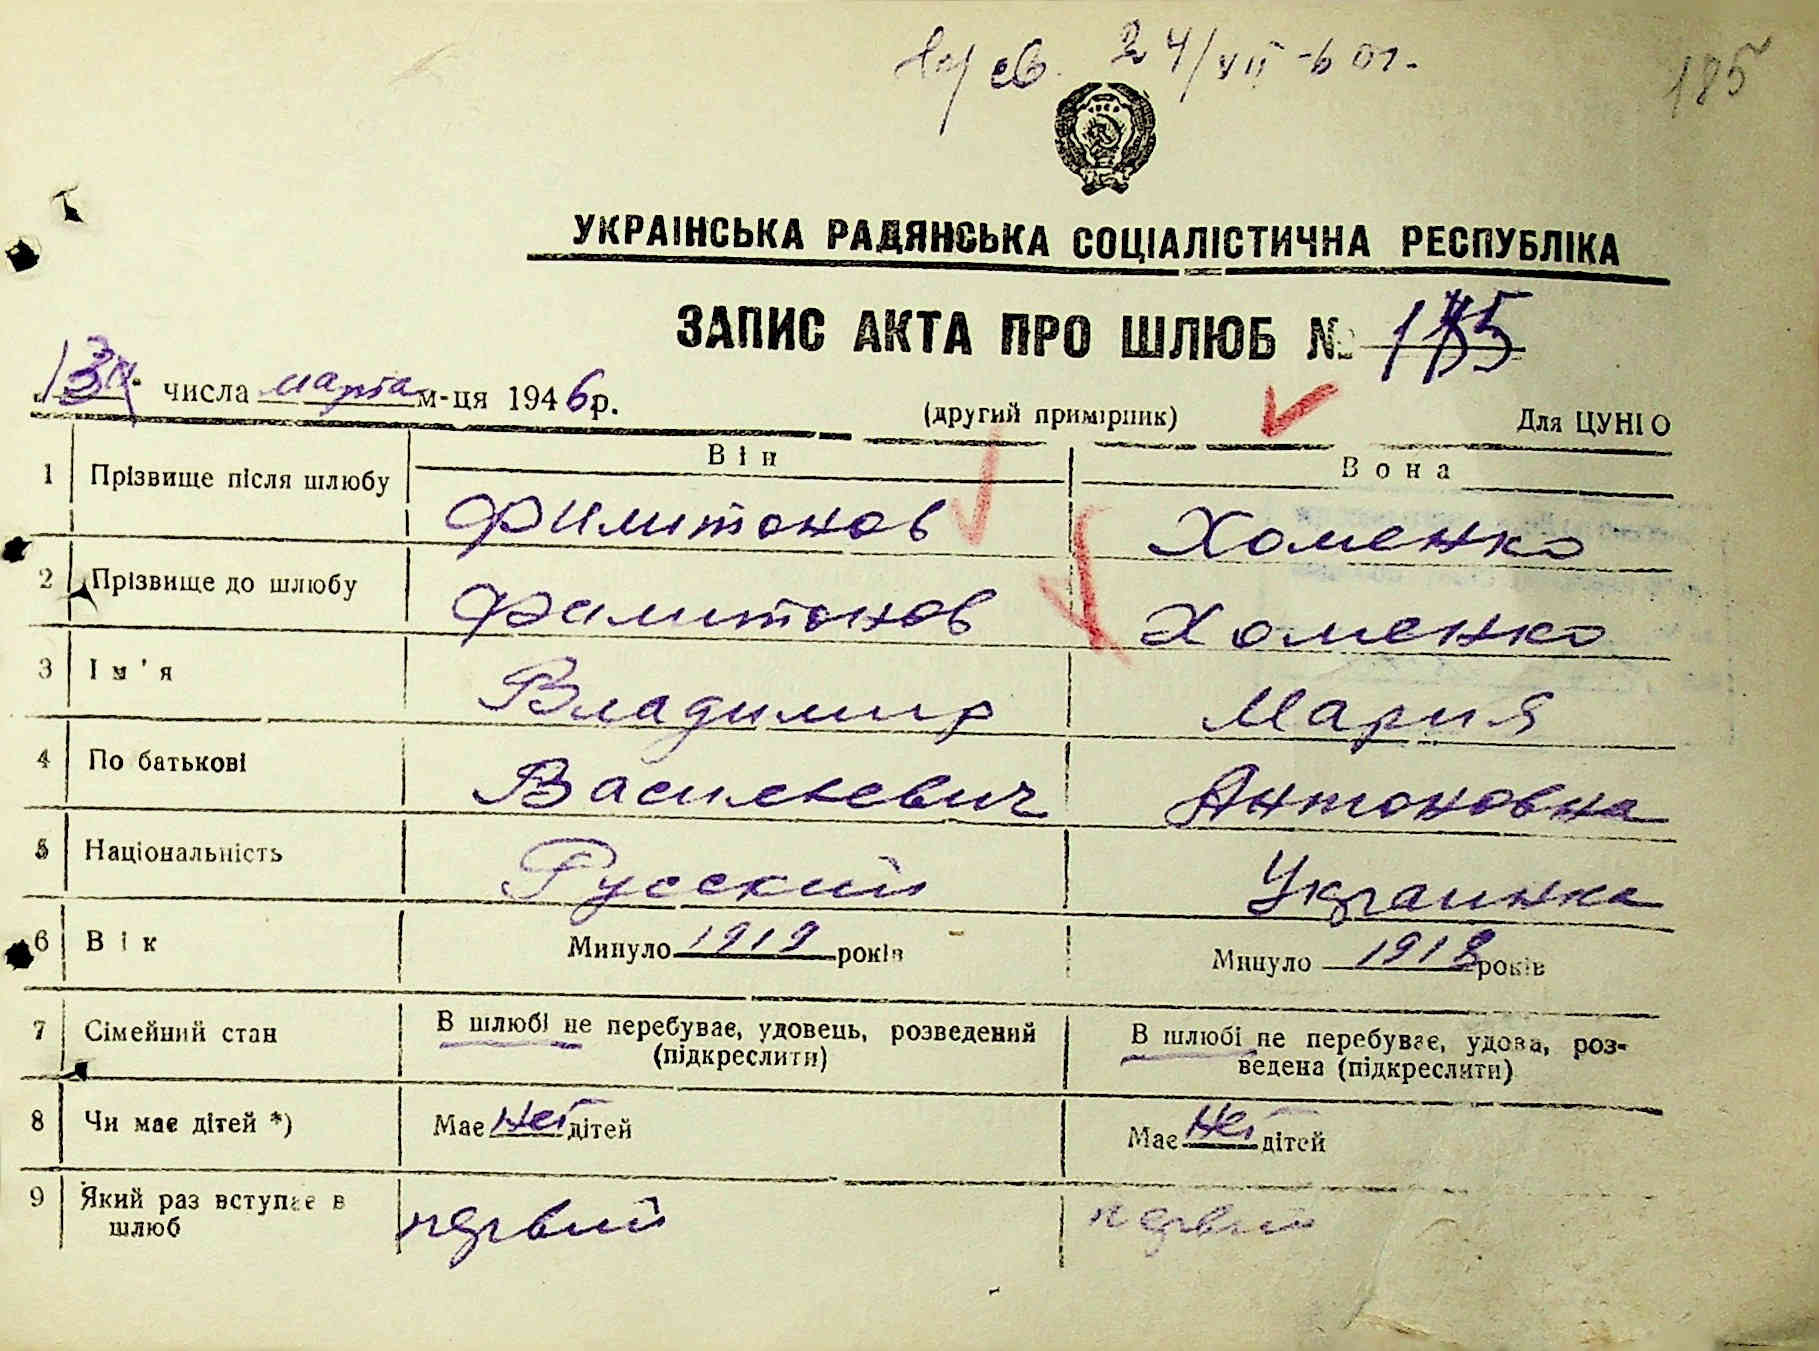 24/VII-60г.
185
УКРАІНСЬКА РАДЯНСЬКА СОЦІАЛІСТИЧНА РЕСПУБЛІКА
ЗАПИС АКТА ПРО ШЛЮБ № 185
13го числа марта м-ця 1946 р.
(другий примірник)
Для ЦУНІО
Він Вона
1 Прізвище після шлюбу Филитонов Хоменко
2 Прізвище до шлюбу Филитонов Хоменко
3 Ім'я Владимир Мария
4 По батькові Васильевич Антоновна
5 Національність Русский Украинка
6 Вік Минуло 1919 років Минуло 1918 років
7 Сімейний стан В шлюбі не перебуває, удовець, розведений В шлюбі не перебуває, удова, роз-
(підкреслити) ведена (підкреслити)
8 Чи має дітей *) Має нет дітей Має нет дітей
9 Який раз вступає в
шлюб первый первый